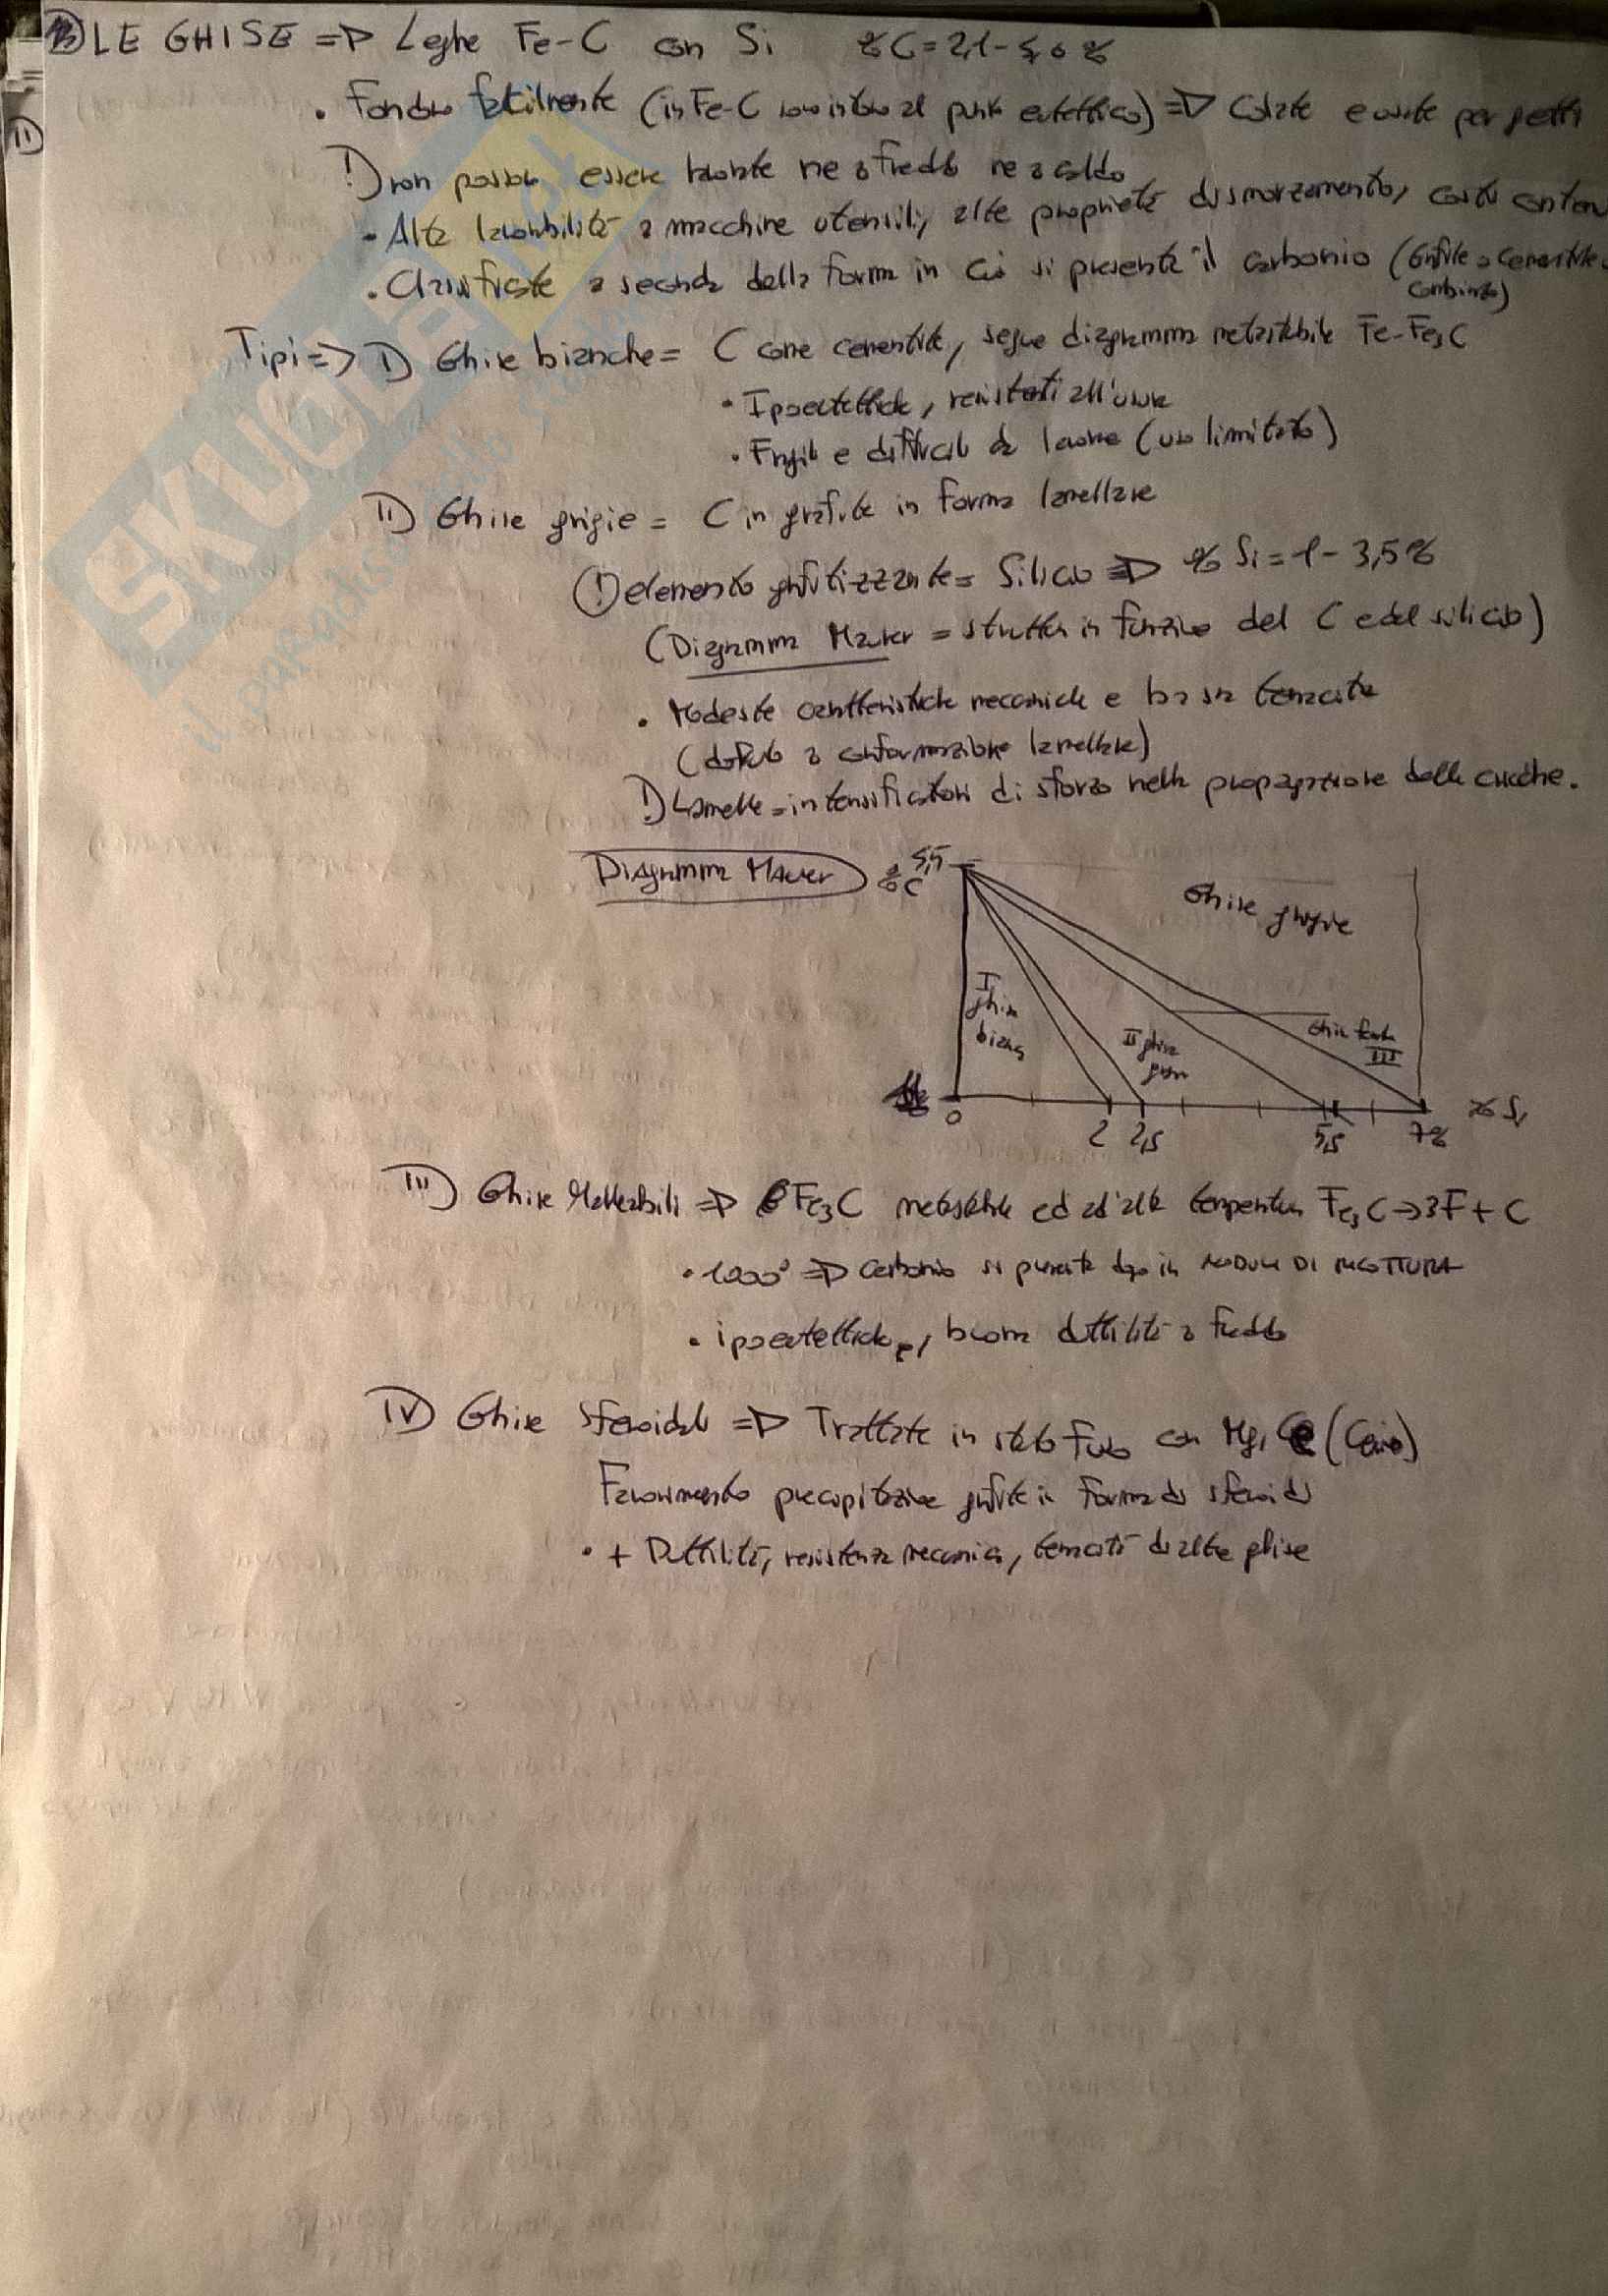 B) LE GHISE => Leghe Fe-C con Si %C = 2,1 - 5,0 %
11)
• Fondono facilmente (in Fe-C sono intorno al punto eutettico) => Colate e usate per getti
!) non possono essere lavorate ne a freddo ne a caldo
• Alta lavorabilità a macchine utensili, alte proprietà di smorzamento, costi conten
• Classificate a seconda della forma in cui si presenta il carbonio (Grafite o cementite
combinato)
Tipi => I) Ghise bianche = C come cementite, segue diagramma metastabile Fe-Fe3C
• Ipoeutettiche, resistenti all'usura
• Fragili e difficili da lavorare (uso limitato)
II) Ghise grigie = C in grafite in forma lamellare
(!) elemento grafitizzante = Silicio => % Si = 1 - 3,5 %
(Diagramma Maurer = struttura in funzione del C e del silicio)
• Modeste caratteristiche meccaniche e bassa tenacità
(dovuto a conformazione lamellare)
!) Lamelle = intensificatori di sforzo nella propagazione delle cricche.
Diagramma Maurer
% C
5,5
Ghise grigie
I ghisa bianca
II ghisa
III
0 2 2,5 5,5 7% % Si
III) Ghise Malleabili => Fe3C metastabile ed ad alte temperature Fe3C -> 3F + C
• 1000° => Carbonio si presenta dopo in NODULI DI RICOTTURA
• ipoeutettiche, buona duttilità a freddo
IV) Ghise sferoidali => Trattate in stato fuso con Mg, Ce (Cerio)
Favorimento precipitazione grafite in forma di sferoidi
• + Duttilità, resistenza meccanica, tenacità di altre ghise
SKUOLA.net
il paradiso dello studente